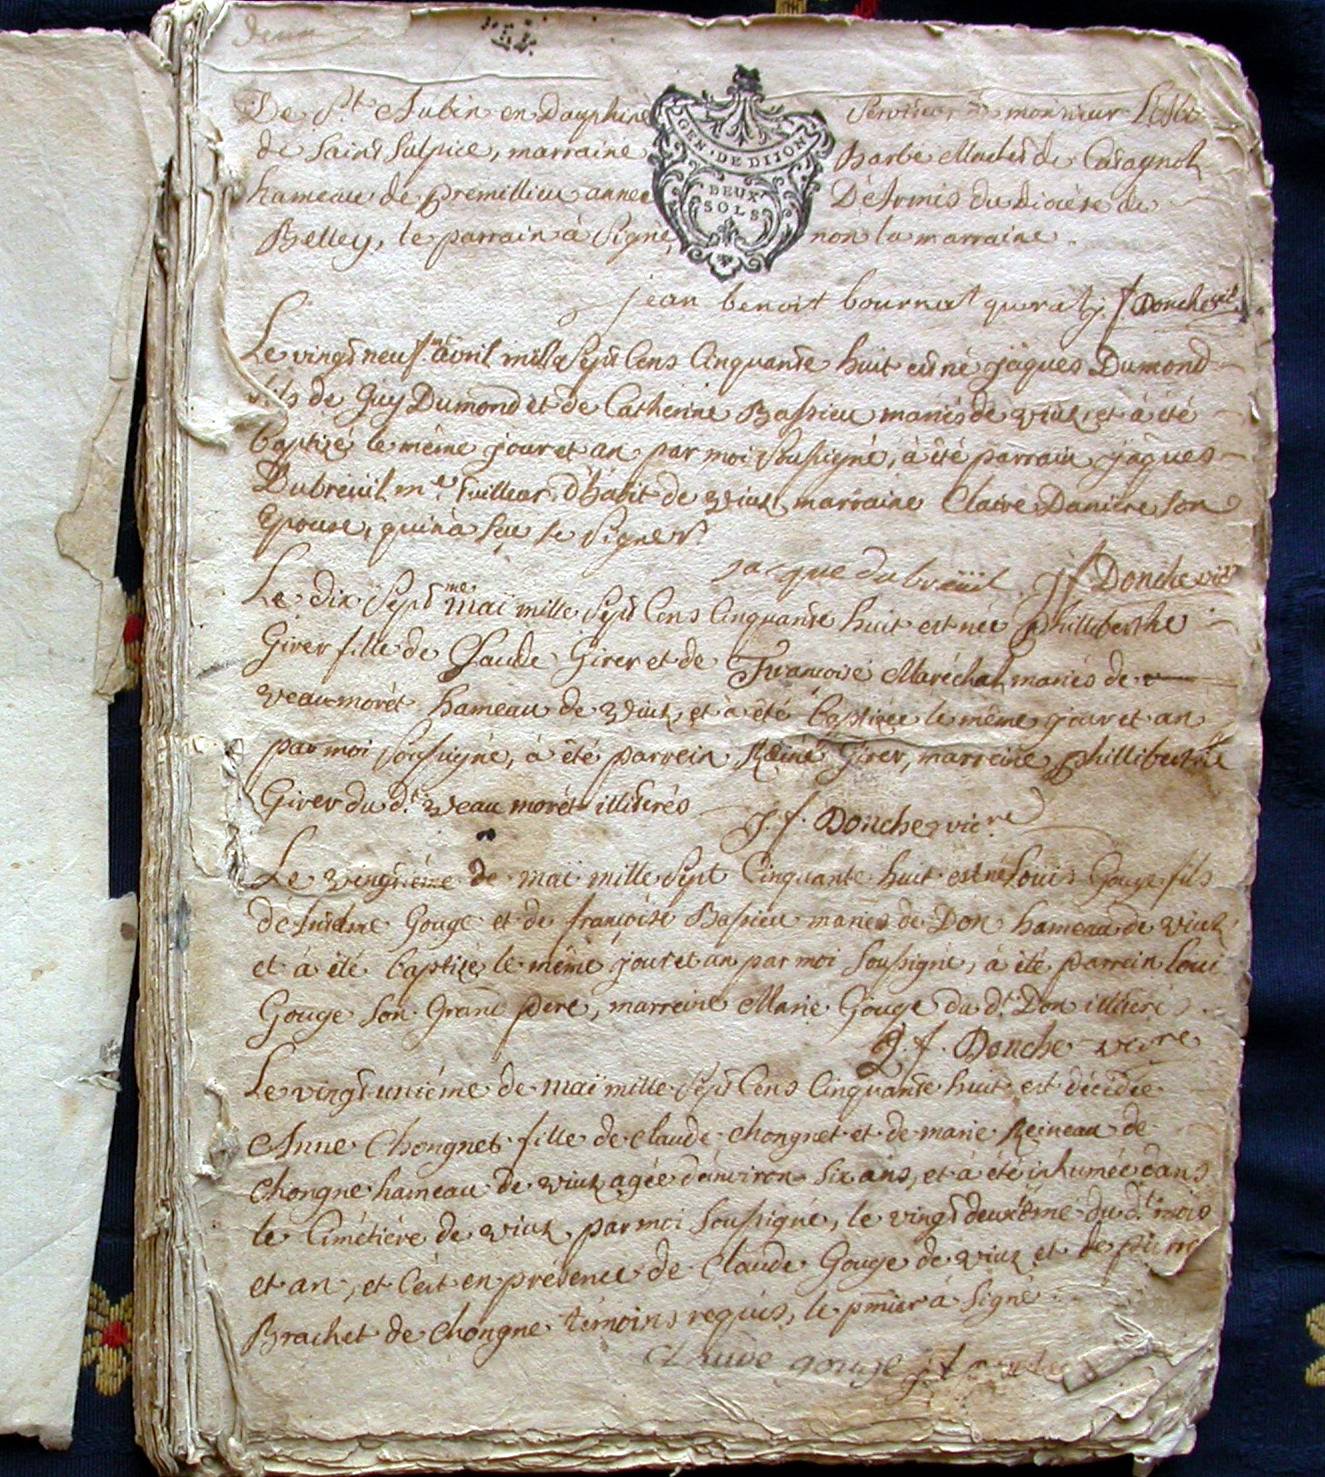 Deux
De St Aubin en Dauphine
GEN. DE DIJON
DEUX
SOLS
monsieur
de saint Sulpice, marraine Barbe
hameau de premillieu du diocése de
Belley, le parrain à signé, non la marraine.
jean benoist bournat J f Donche
Le vingt neuf avril mille sept cens cinquante huit est né jâques Dumond
fils de Guy Dumond et de Catherine Bassieu mariés de vieux, et à été
baptizé le même jour et an par moi soussigné, à été parrain jâques
Dubreüil me tailleur d'habit de vieux, marraine Claire Daniere son
Epouse, qui n'a sçu se signer
jacque du breüil J f Donche vire
Le dix septme mai mille sept cens cinquante huit est née philliberthe
Girer fille de Claude Girer et de Françoise Maréchal mariés de
veaumorét hameau de vieux, et à été baptizée le même jour et an
par moi soussigné, à été parrein Reiné Girer, marreine philliberthe
Girer du dt veau morét illiterés
J. f. Donche vicre
Le vingtiéme de mai mille sept cinquante huit est né Louis Gouge fils
de Gouge et de françoise Bassieu mariés de Don hameau de vieux
et à été baptizé le même jour et an par moi soussigné, à été parrein Loui
Gouge son grand pere, marreine Marie Gouge du dt Don illiteré
J. f. Donche vicre
Le vingt uniéme de maï mille sept cens cinquante huit est décédée
Anne Chongnet fille de claude chongnet et de marie Reineau de
chongne hameau de vieux agée d'environ six ans, et à été inhumée dans
le cimétiére de vieux par moi soussigné, le vingt deuxiéme du dt mois
et an, et c'ét en présence de Claude Gouge de vieux et de pierre
Brachet de chongne témoins requis, le pmier à signé
claude gouge